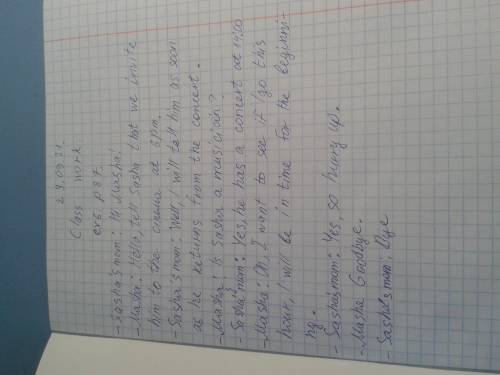 23.09.21
Class work
ex6 p 87.
- Sasha's mom: Hi Masha!
- Masha: Hello, tell Sasha that we invite
him to the cinema at 6pm.
- Sasha's mom: Well, I will tell him as soon
as he returns from the concert.
- Masha: Is Sasha a musician?
- Sasha's mom: Yes, he has a concert at 14:00
- Masha: Oh, I want to see it I go this
hour, I will be in time for the beginni-
ng.
- Sasha's mom: Yes, so hurry up.
- Masha Goodbye.
- Sasha's mom: Bye